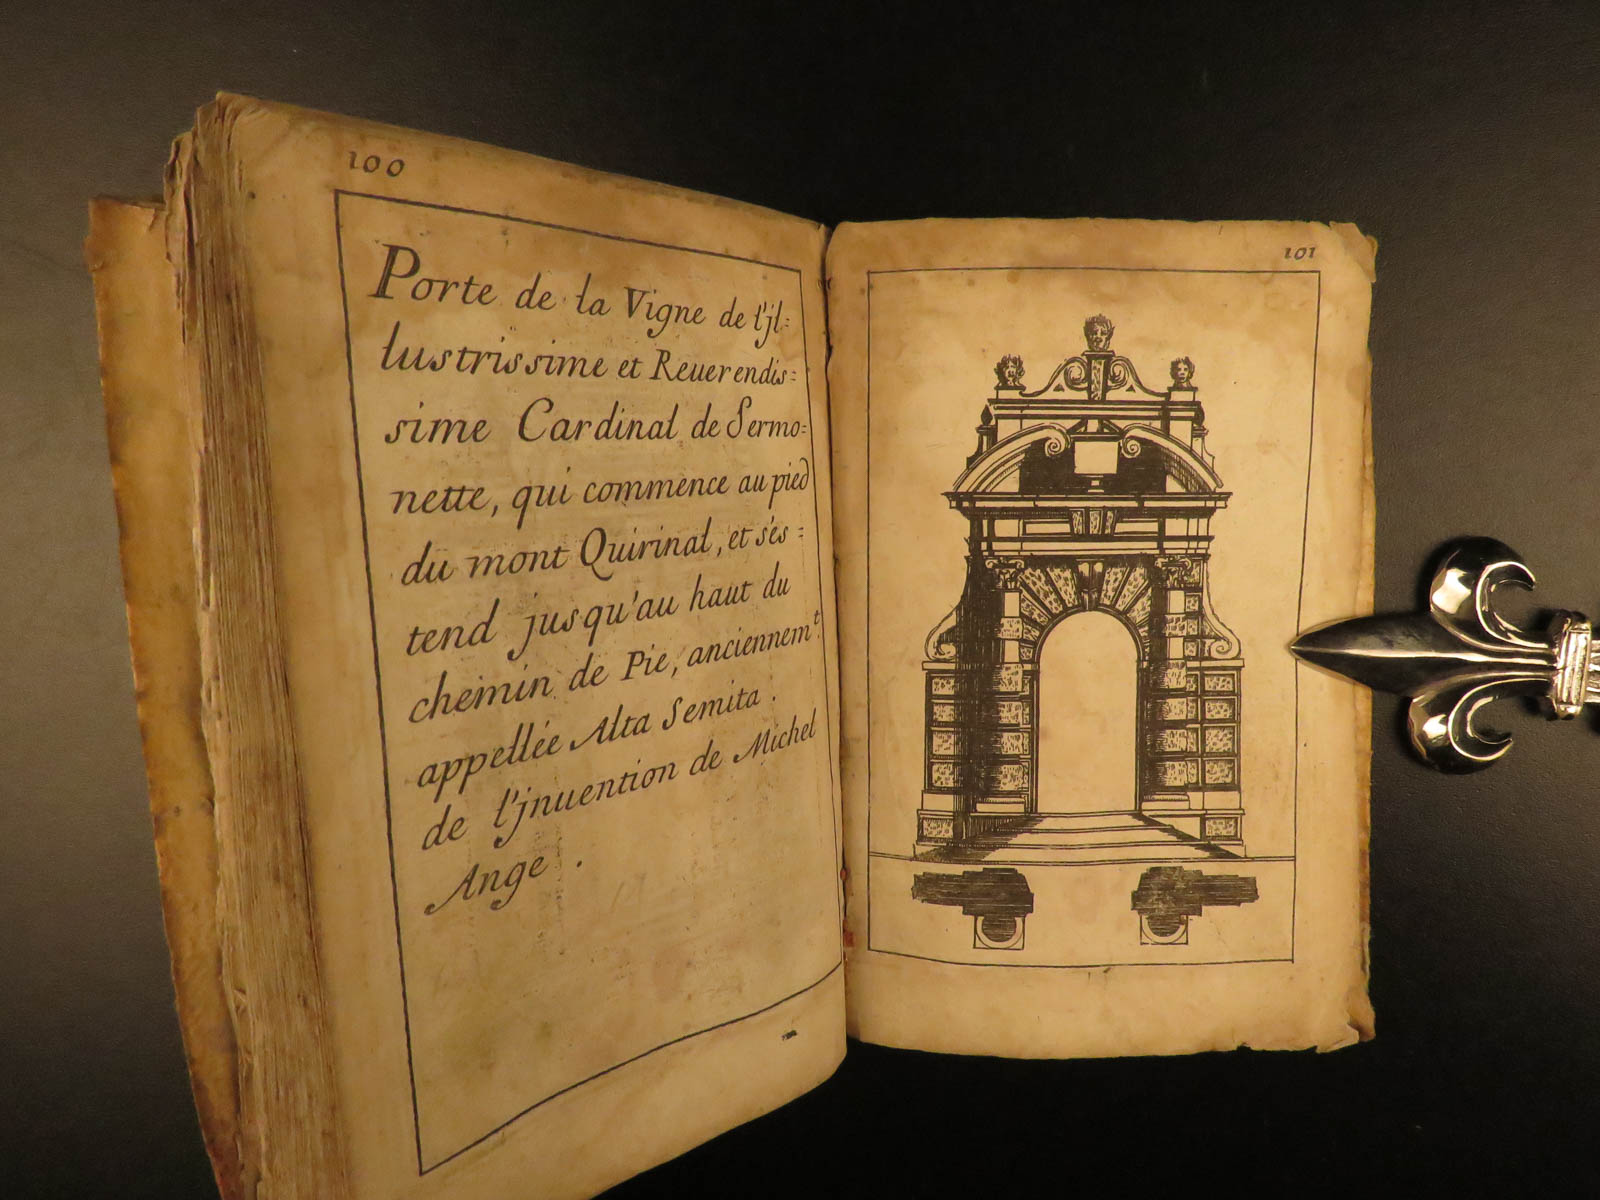 100
Porte de la Vigne de l'jl=
lustrissime et Reuerendis=
sime Cardinal de Sermo=
nette, qui commence au pied
du mont Quirinal, et s'és=
tend jusqu'au haut du
chemin de Pie, anciennemt.
appellée Alta Semita.
de l'jnuention de Michel
Ange.
101